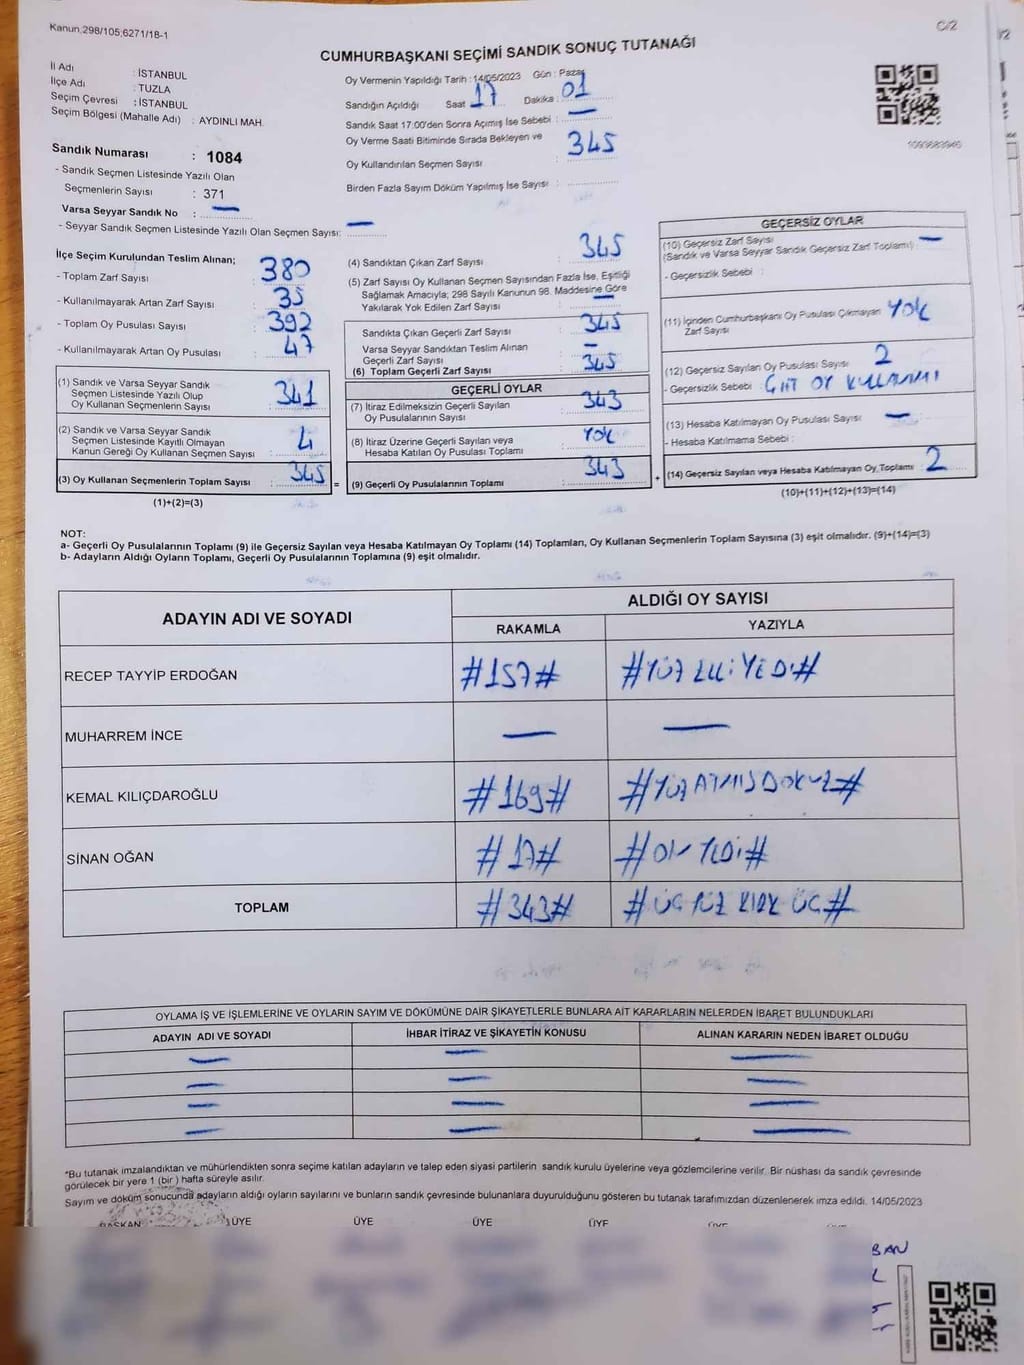 Kanun,298/105;6271/18-1
C/2
CUMHURBAŞKANI SEÇİMİ SANDIK SONUÇ TUTANAĞI
İl Adı : İSTANBUL
İlçe Adı : TUZLA
Seçim Çevresi : İSTANBUL
Seçim Bölgesi (Mahalle Adı) : AYDINLI MAH.
Sandık Numarası : 1084
- Sandık Seçmen Listesinde Yazılı Olan
Seçmenlerin Sayısı : 371
Varsa Seyyar Sandık No : —
- Seyyar Sandık Seçmen Listesinde Yazılı Olan Seçmen Sayısı: —
Oy Vermenin Yapıldığı Tarih : 14/05/2023 Gün : Pazar
Sandığın Açıldığı Saat 17 Dakika : 01
Sandık Saat 17:00'den Sonra Açımış İse Sebebi : —
Oy Verme Saati Bitiminde Sırada Bekleyen ve
Oy Kullandırılan Seçmen Sayısı : 345
Birden Fazla Sayım Döküm Yapılmış İse Sayısı :
1093683946
İlçe Seçim Kurulundan Teslim Alınan;
- Toplam Zarf Sayısı : 380
- Kullanılmayarak Artan Zarf Sayısı : 35
- Toplam Oy Pusulası Sayısı : 392
- Kullanılmayarak Artan Oy Pusulası : 47
(1) Sandık ve Varsa Seyyar Sandık
Seçmen Listesinde Yazılı Olup
Oy Kullanan Seçmenlerin Sayısı : 341
(2) Sandık ve Varsa Seyyar Sandık
Seçmen Listesinde Kayıtlı Olmayan
Kanun Gereği Oy Kullanan Seçmen Sayısı : 4
(3) Oy Kullanan Seçmenlerin Toplam Sayısı : 345 =
(1)+(2)=(3)
(4) Sandıktan Çıkan Zarf Sayısı : 345
(5) Zarf Sayısı Oy Kullanan Seçmen Sayısından Fazla İse, Eşitliği
Sağlamak Amacıyla; 298 Sayılı Kanunun 98. Maddesine Göre
Yakılarak Yok Edilen Zarf Sayısı : —
Sandıkta Çıkan Geçerli Zarf Sayısı : 345
Varsa Seyyar Sandıktan Teslim Alınan
Geçerli Zarf Sayısı : —
(6) Toplam Geçerli Zarf Sayısı : 345
GEÇERLİ OYLAR
(7) İtiraz Edilmeksizin Geçerli Sayılan
Oy Pusulalarının Sayısı : 343
(8) İtiraz Üzerine Geçerli Sayılan veya
Hesaba Katılan Oy Pusulası Toplamı : YOK
(9) Geçerli Oy Pusulalarının Toplamı : 343 +
GEÇERSİZ OYLAR
(10) Geçersiz Zarf Sayısı
(Sandık ve Varsa Seyyar Sandık Geçersiz Zarf Toplamı) : —
- Geçersizlik Sebebi :
(11) İçinden Cumhurbaşkanı Oy Pusulası Çıkmayan
Zarf Sayısı : YOK
(12) Geçersiz Sayılan Oy Pusulası Sayısı : 2
- Geçersizlik Sebebi : ÇİFT OY KULLANIMI
(13) Hesaba Katılmayan Oy Pusulası Sayısı : —
- Hesaba Katılmama Sebebi :
(14) Geçersiz Sayılan veya Hesaba Katılmayan Oy Toplamı : 2
(10)+(11)+(12)+(13)=(14)
NOT:
a- Geçerli Oy Pusulalarının Toplamı (9) ile Geçersiz Sayılan veya Hesaba Katılmayan Oy Toplamı (14) Toplamları, Oy Kullanan Seçmenlerin Toplam Sayısına (3) eşit olmalıdır. (9)+(14)=(3)
b- Adayların Aldığı Oyların Toplamı, Geçerli Oy Pusulalarının Toplamına (9) eşit olmalıdır.
ADAYIN ADI VE SOYADI
ALDIĞI OY SAYISI
RAKAMLA YAZIYLA
RECEP TAYYİP ERDOĞAN #157# #YÜZ ELLİ YEDİ#
MUHARREM İNCE — —
KEMAL KILIÇDAROĞLU #169# #YÜZ ATMIŞ DOKUZ#
SİNAN OĞAN #17# #ON YEDİ#
TOPLAM #343# #ÜÇ YÜZ KIRK ÜÇ#
OYLAMA İŞ VE İŞLEMLERİNE VE OYLARIN SAYIM VE DÖKÜMÜNE DAİR ŞİKAYETLERLE BUNLARA AİT KARARLARIN NELERDEN İBARET BULUNDUKLARI
ADAYIN ADI VE SOYADI İHBAR İTİRAZ VE ŞİKAYETİN KONUSU ALINAN KARARIN NEDEN İBARET OLDUĞU
— — —
— — —
— — —
— — —
*Bu tutanak imzalandıktan ve mühürlendikten sonra seçime katılan adayların ve talep eden siyasi partilerin sandık kurulu üyelerine veya gözlemcilerine verilir. Bir nüshası da sandık çevresinde
görülecek bir yere 1 (bir) hafta süreyle asılır.
Sayım ve döküm sonucunda adayların aldığı oyların sayılarını ve bunların sandık çevresinde bulunanlara duyurulduğunu gösteren bu tutanak tarafımızdan düzenlenerek imza edildi. 14/05/2023
BAŞKAN ÜYE ÜYE ÜYE ÜYE